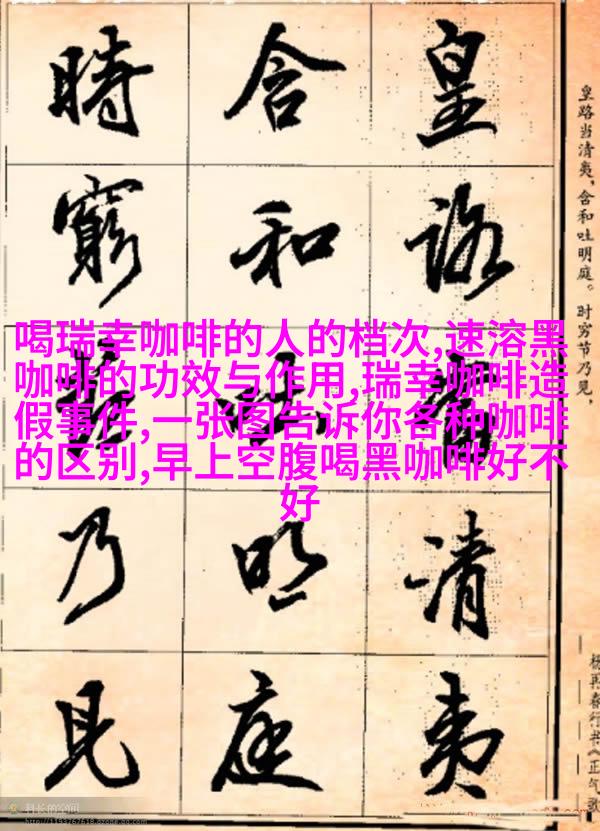 皇路当清夷,含和吐明庭。时穷节乃见,
杨再春行书《正气歌
皇路當清夷
含和吐明庭
時窮節乃見
喝瑞幸咖啡的人的档次,速溶黑
咖啡的功效与作用,瑞幸咖啡造
假事件,一张图告诉你各种咖啡
的区别,早上空腹喝黑咖啡好不
好
科长的空间